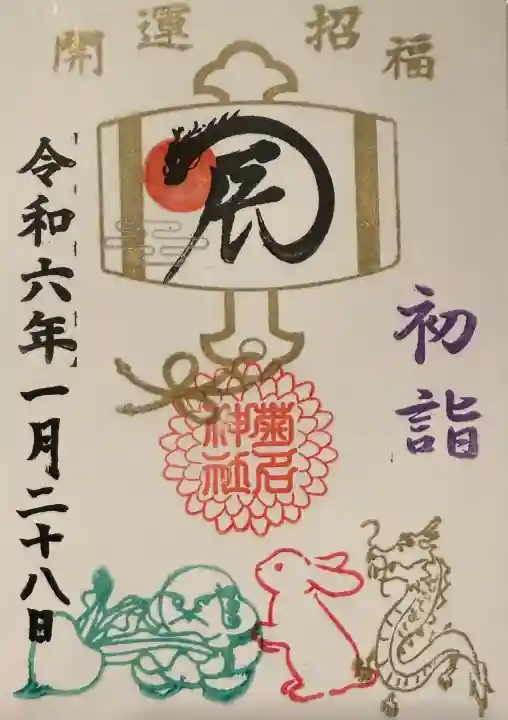 開運招福
辰
初詣
菊名
神社
令和六年一月二十八日